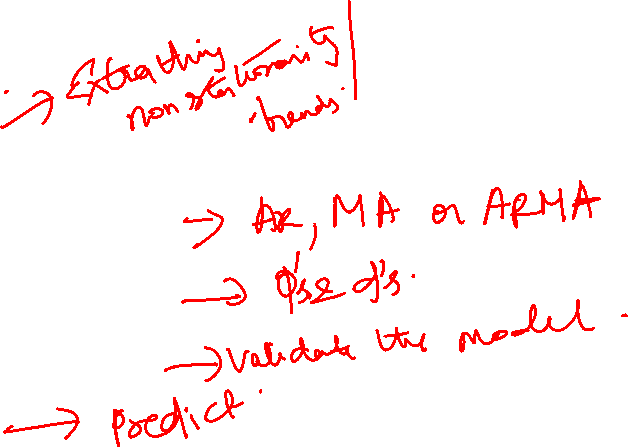 → Extracting
non stationarity
trends.
→ AR, MA or ARMA
→ φ's & d's.
→ Validate the model.
→ Predict.